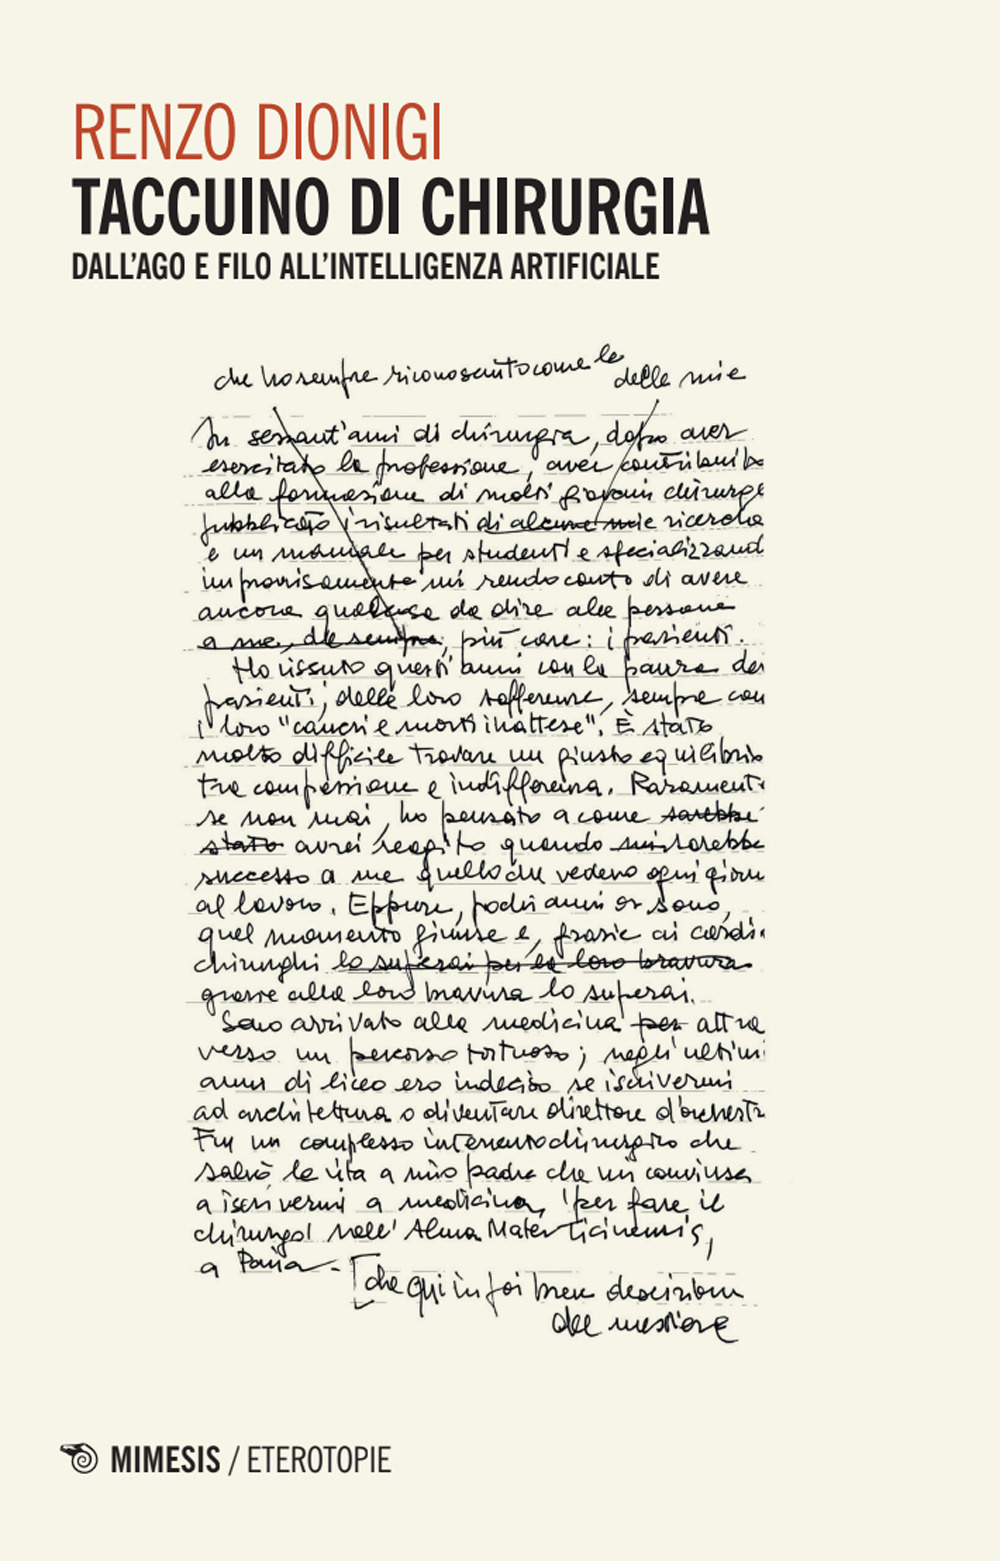 RENZO DIONIGI
TACCUINO DI CHIRURGIA
DALL'AGO E FILO ALL'INTELLIGENZA ARTIFICIALE
che ho sempre riconosciuto come le
delle mie
In sessant'anni di chirurgia, dopo aver
esercitato la professione, aver contribuito
alla formazione di molti giovani chirurgi
pubblicato i risultati di alcune mie ricerche
e un manuale per studenti e specializzand
improvvisamente mi rendo conto di avere
ancora qualcosa da dire alle persone
a me, da sempre, più care: i pazienti.
Ho vissuto questi anni con la paura dei
pazienti, delle loro sofferenze, sempre con
i loro "cancri e morti inattese". È stato
molto difficile trovare un giusto equilibrio
tra compassione e indifferenza. Rarament
se non mai, ho pensato a come sarebbe
stato avrei reagito quando mi sarebbe
successo a me quello che vedevo ogni giorn
al lavoro. Eppure, pochi anni or sono,
quel momento giunse e, grazie ai cardi
chirurghi lo superai per la loro bravura
grazie alla loro bravura lo superai.
Sono arrivato alla medicina per attra
verso un percorso tortuoso; negli ultimi
anni di liceo ero indeciso se iscrivermi
ad architettura o diventare direttore d'orchestr
Fu un complesso intervento chirurgico che
salvò la vita a mio padre che mi convinse
a iscrivermi a medicina, "per fare il
chirurgo" nell'Alma Mater Ticinensis,
a Pavia - [che qui in poi breve descrizione
del mestiere
MIMESIS / ETEROTOPIE